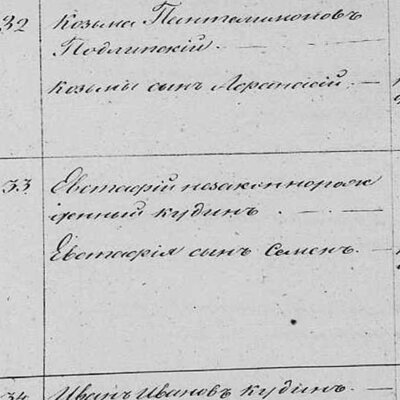 32 Козьма Пантелимоновъ
Подлипскій. —
Козьмы сынъ Афанасій. —
33 Евстафій незаконнорож
денный Кудинъ. —
Евстафія сынъ Семенъ. —
34 Иванъ Ивановъ Кудинъ. —